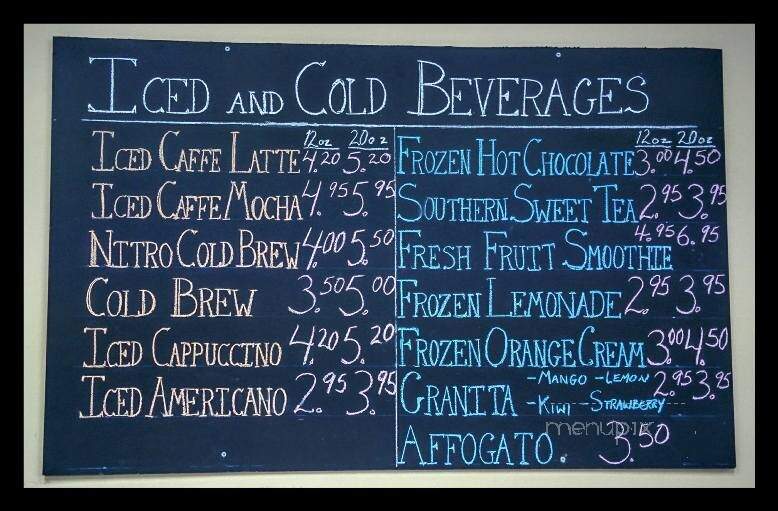 ICED AND COLD BEVERAGES
12oz 20oz
ICED CAFFE LATTE 4.20 5.20
ICED CAFFE MOCHA 4.95 5.95
NITRO COLD BREW 4.00 5.50
COLD BREW 3.50 5.00
ICED CAPPUCCINO 4.20 5.20
ICED AMERICANO 2.95 3.95
12oz 20oz
FROZEN HOT CHOCOLATE 3.00 4.50
SOUTHERN SWEET TEA 2.95 3.95
FRESH FRUIT SMOOTHIE 4.95 6.95
FROZEN LEMONADE 2.95 3.95
FROZEN ORANGE CREAM 3.00 4.50
GRANITA - MANGO - LEMON 2.95 3.95
- KIWI - STRAWBERRY
menupix
AFFOGATO. 3.50